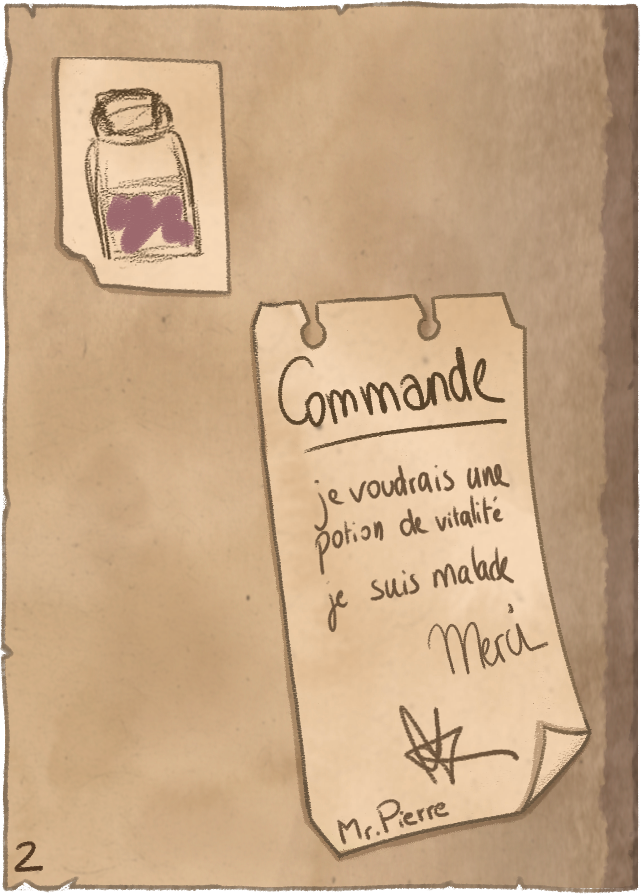 Commande
je voudrais une
potion de vitalité
je suis malade
Merci
Mr. Pierre
2